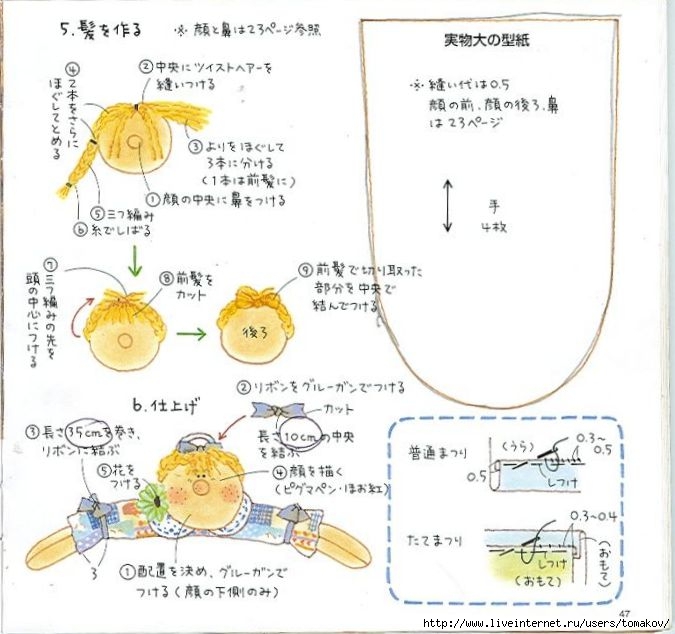 5. 髪を作る
※ 顔と鼻は23ページ参照
② 中央にツイストヘアーを
縫いつける
④ 2本をさらに
ほぐしてとめる
③ よりをほぐして
3本に分ける
(1本は前髪に)
① 顔の中央に鼻をつける
⑤ 三つ編み
⑥ 糸でしばる
⑦ 三つ編みの先を
頭の中心につける
⑧ 前髪を
カット
⑨ 前髪で切り取った
部分を中央で
結んでつける
後ろ
6. 仕上げ
② リボンをグルーガンでつける
カット
長さ10cmの中央
を結ぶ
③ 長さ35cmを巻き、
リボンに結ぶ
⑤ 花を
つける
④ 顔を描く
(ピグマペン・ほお紅)
3
① 配置を決め、グルーガンで
つける(顔の下側のみ)
実物大の型紙
※ 縫い代は0.5
顔の前、顔の後ろ、鼻
は23ページ
手
4枚
普通まつり
(うら)
0.3~
0.5
0.5
しつけ
たてまつり
0.3~0.4
しつけ
(おもて)
(おもて)
47
http://www.liveinternet.ru/users/tomakov/